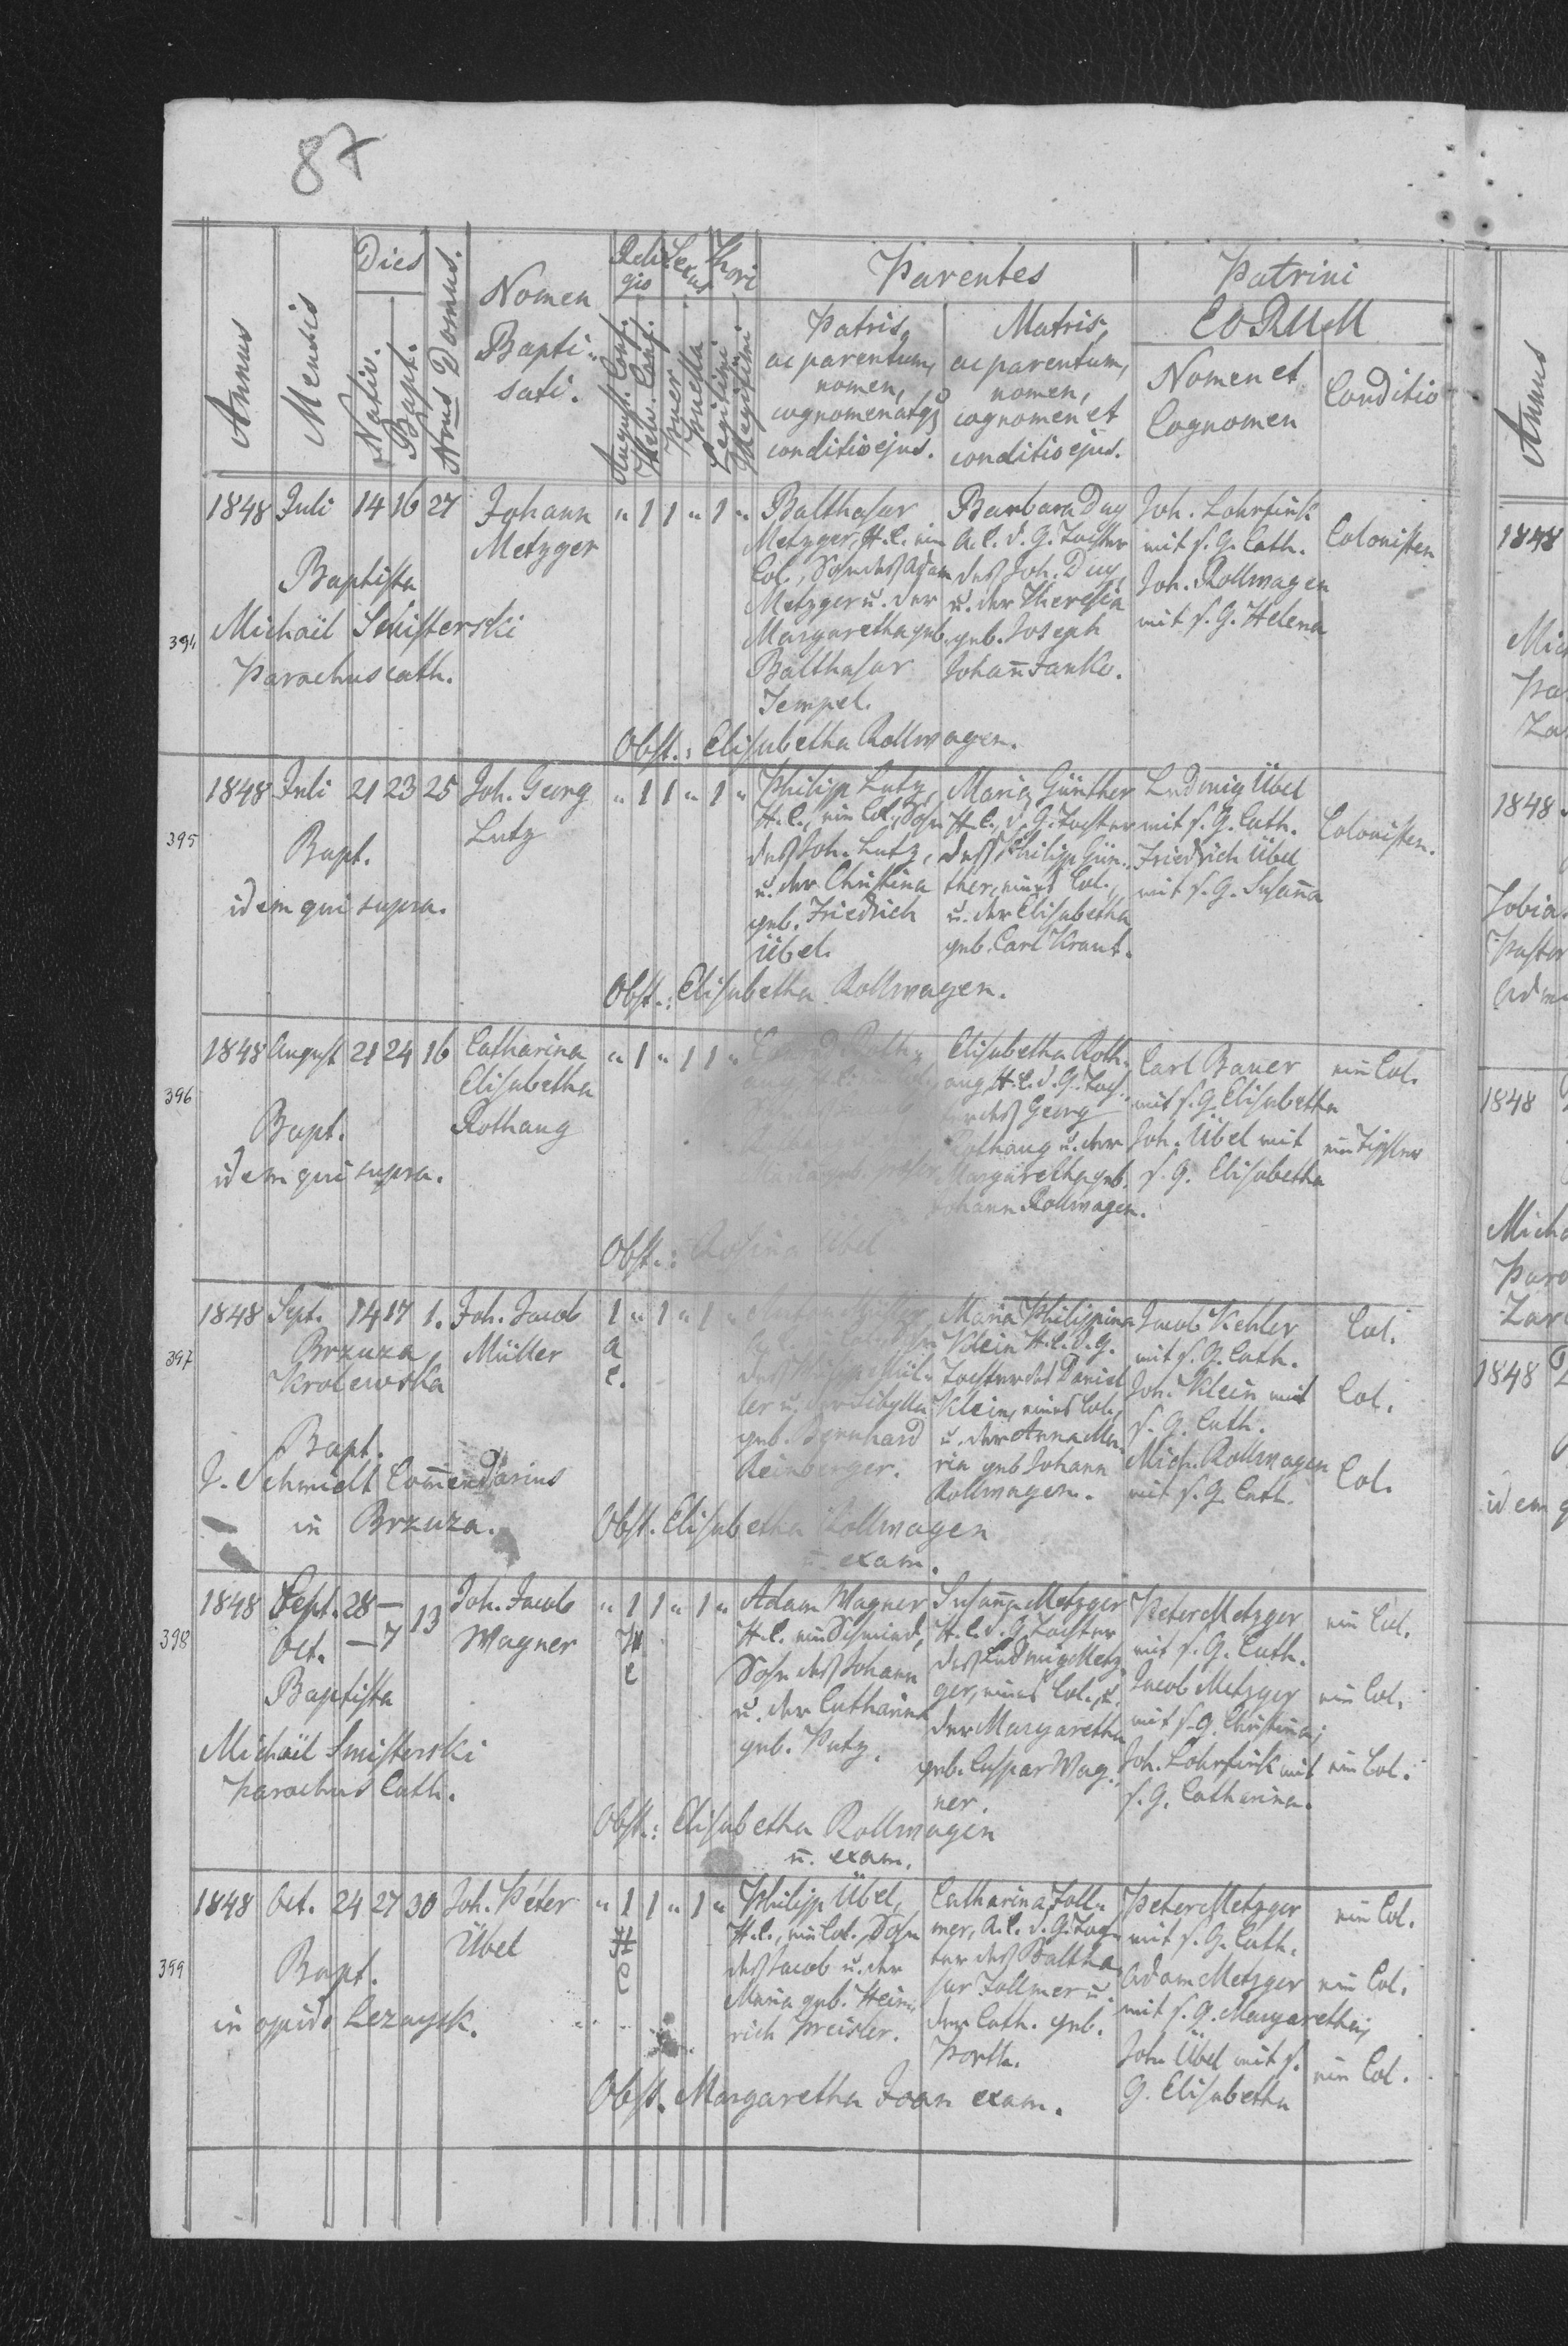 87
Annus
Mensis
Dies
Nativ.
Bapt.
Nrus Domus.
Nomen
Bapti-
sati.
Reli
gio
August. Conf.
Helv. Conf.
Sexus
Puer
Puella
Thori
Legitimi
Illegitimi
Parentes
Patris,
ac parentum,
nomen,
cognomen atq
conditio ejus.
Matris,
ac parentum,
nomen,
cognomen et
conditio ejus.
Patrini
EORUM
Nomen et
Cognomen
Conditio
394
1848 Juli 14 16 27 Johann
Metzger
Baptista
Michaël Smisterski
Parochus cath.
" 1 1 " 1 "
Balthasar
Metzger, H.C. ein
Col., Sohn des Adam
Metzger u. der
Margaretha geb.
Balthasar
Tempel.
Barbara Duy
A.C. d. G. Tochter
des Joh. Duy,
u. der Theresia
geb. Joseph
Johañ Janko.
Joh. Lohrfink
mit s. G. Cath.
Joh. Rollwagen
mit s. G. Helena
Colonisten
Obst.: Elisabetha Rollwagen.
395
1848 Juli 21 23 25 Joh. Georg
Lutz
Bapt.
idem qui supra.
" 1 1 " 1 "
Philipp Lutz,
H.C., ein Col., Sohn
des Joh. Lutz,
u. der Christina
geb. Friedrich
Übel.
Maria Günther
H.C., d. G. Tochter
des Philipp Gün-
ther, eines Col.,
u. der Elisabetha
geb. Carl Kraut.
Ludwig Übel
mit s. G. Cath.
Friedrich Übel
mit s. G. Susaña
Colonisten.
Obst.: Elisabetha Rollwagen.
396
1848 August 21 24 16 Catharina
Elisabetha
Rothaug
Bapt.
idem qui supra.
" 1 " 1 1 "
Roth-
aug H.C.
Maria geb.
Elisabetha Roth-
aug, H.C. d. G. Toch-
ter des Georg
Rothaug u. der
Margaretha geb.
Johann Rollwagen.
Carl Bauer
mit s. G. Elisabetha
Joh. Übel mit
s. G. Elisabetha
ein Col.
ein Tischler
Obst.: Rosina Übel
397
1848 Sept. 14 17 1. Joh. Jacob
Müller
Brzuza
Krolewska
Bapt.
J. Schmidt Com̄endarius
in Brzuza.
1 " 1 " 1 "
A
C.
Müller
des Philipp Mül-
ler u. der Sibylla
geb. Bernhard
Reinberger.
Maria Philippina
Klein H.C. d. G.
Tochter des Daniel
Klein, eines Col.,
u. der Anna Ma-
ria geb Johann
Rollwagen.
Jacob Kehler
mit s. G. Cath.
Joh. Klein mit
s. G. Cath.
Mich. Rollwagen
mit s. G. Cath.
Col.
Col.
Col.
Obst. Elisabetha Rollwagen
exam.
398
1848 Sept. 28 —
Oct. — 7
13
Joh. Jacob
Wagner
Baptista
Michaël Smisterski
Parochus Cath.
" 1 1 " 1 "
H
C
Adam Wagner
H.C. ein Schmied,
Sohn des Johann
u. der Catharina
geb. Putz.
Susaña Metzger
H.C. d. G. Tochter
des Ludwig Metz-
ger, eines Col., u.
der Margaretha
geb. Caspar Wag-
ner.
Peter Metzger
mit s. G. Cath.
Jacob Metzger
mit s. G. Christina;
Joh. Lohrfink mit
s. G. Catharina.
ein Col.
ein Col.
ein Col.
Obst.: Elisabetha Rollwagen
u. exam.
399
1848 Oct. 24 27 30 Joh. Peter
Übel
Bapt.
in opido Lezaysk.
" 1 1 " 1 "
H
C
Philipp Übel,
H.C., ein Col. Sohn
des Jacob u. der
Maria geb. Hein-
rich Preisler.
Catharina Zoll-
mer, A.C. d. G. Toch-
ter des Baltha-
sar Zollmer u.
der Cath. geb.
Porth.
Peter Metzger
mit s. G. Cath.
Adam Metzger
mit s. G. Margaretha;
Joh. Übel mit s.
G. Elisabetha
ein Col.
ein Col.
ein Col.
Obst. Margaretha Joan exam.
Annus
1848
1848
1848
1848